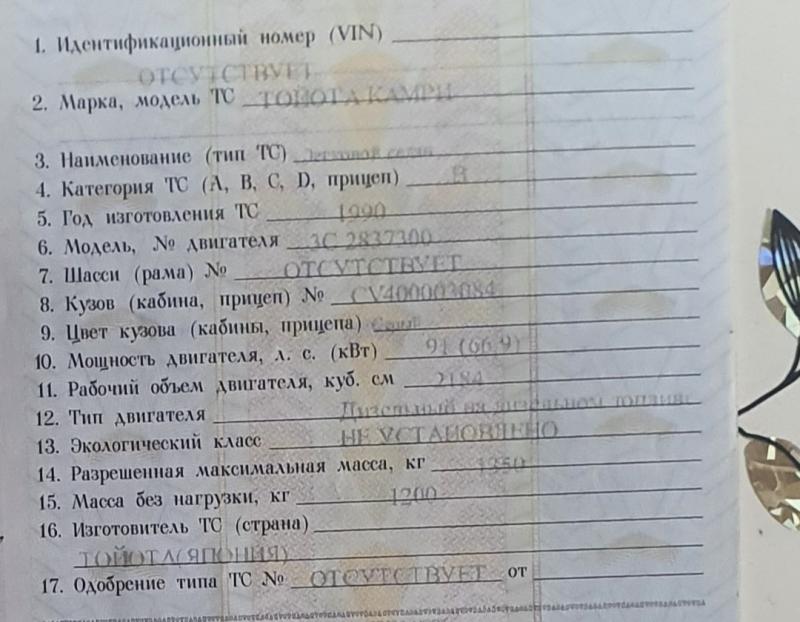 1. Идентификационный номер (VIN)
ОТСУТСТВУЕТ
2. Марка, модель ТС ТОЙОТА КАМРИ
3. Наименование (тип ТС) Легковой седан
4. Категория ТС (A, B, C, D, прицеп) B
5. Год изготовления ТС 1990
6. Модель, № двигателя 3C 2837300
7. Шасси (рама) № ОТСУТСТВУЕТ
8. Кузов (кабина, прицеп) № CV400003084
9. Цвет кузова (кабины, прицепа)
10. Мощность двигателя, л. с. (кВт) 91 (66,9)
11. Рабочий объем двигателя, куб. см 2184
12. Тип двигателя Дизельный на дизельном топливе
13. Экологический класс НЕ УСТАНОВЛЕНО
14. Разрешенная максимальная масса, кг
15. Масса без нагрузки, кг 1200
16. Изготовитель ТС (страна)
ТОЙОТА(ЯПОНИЯ)
17. Одобрение типа ТС № ОТСУТСТВУЕТ от